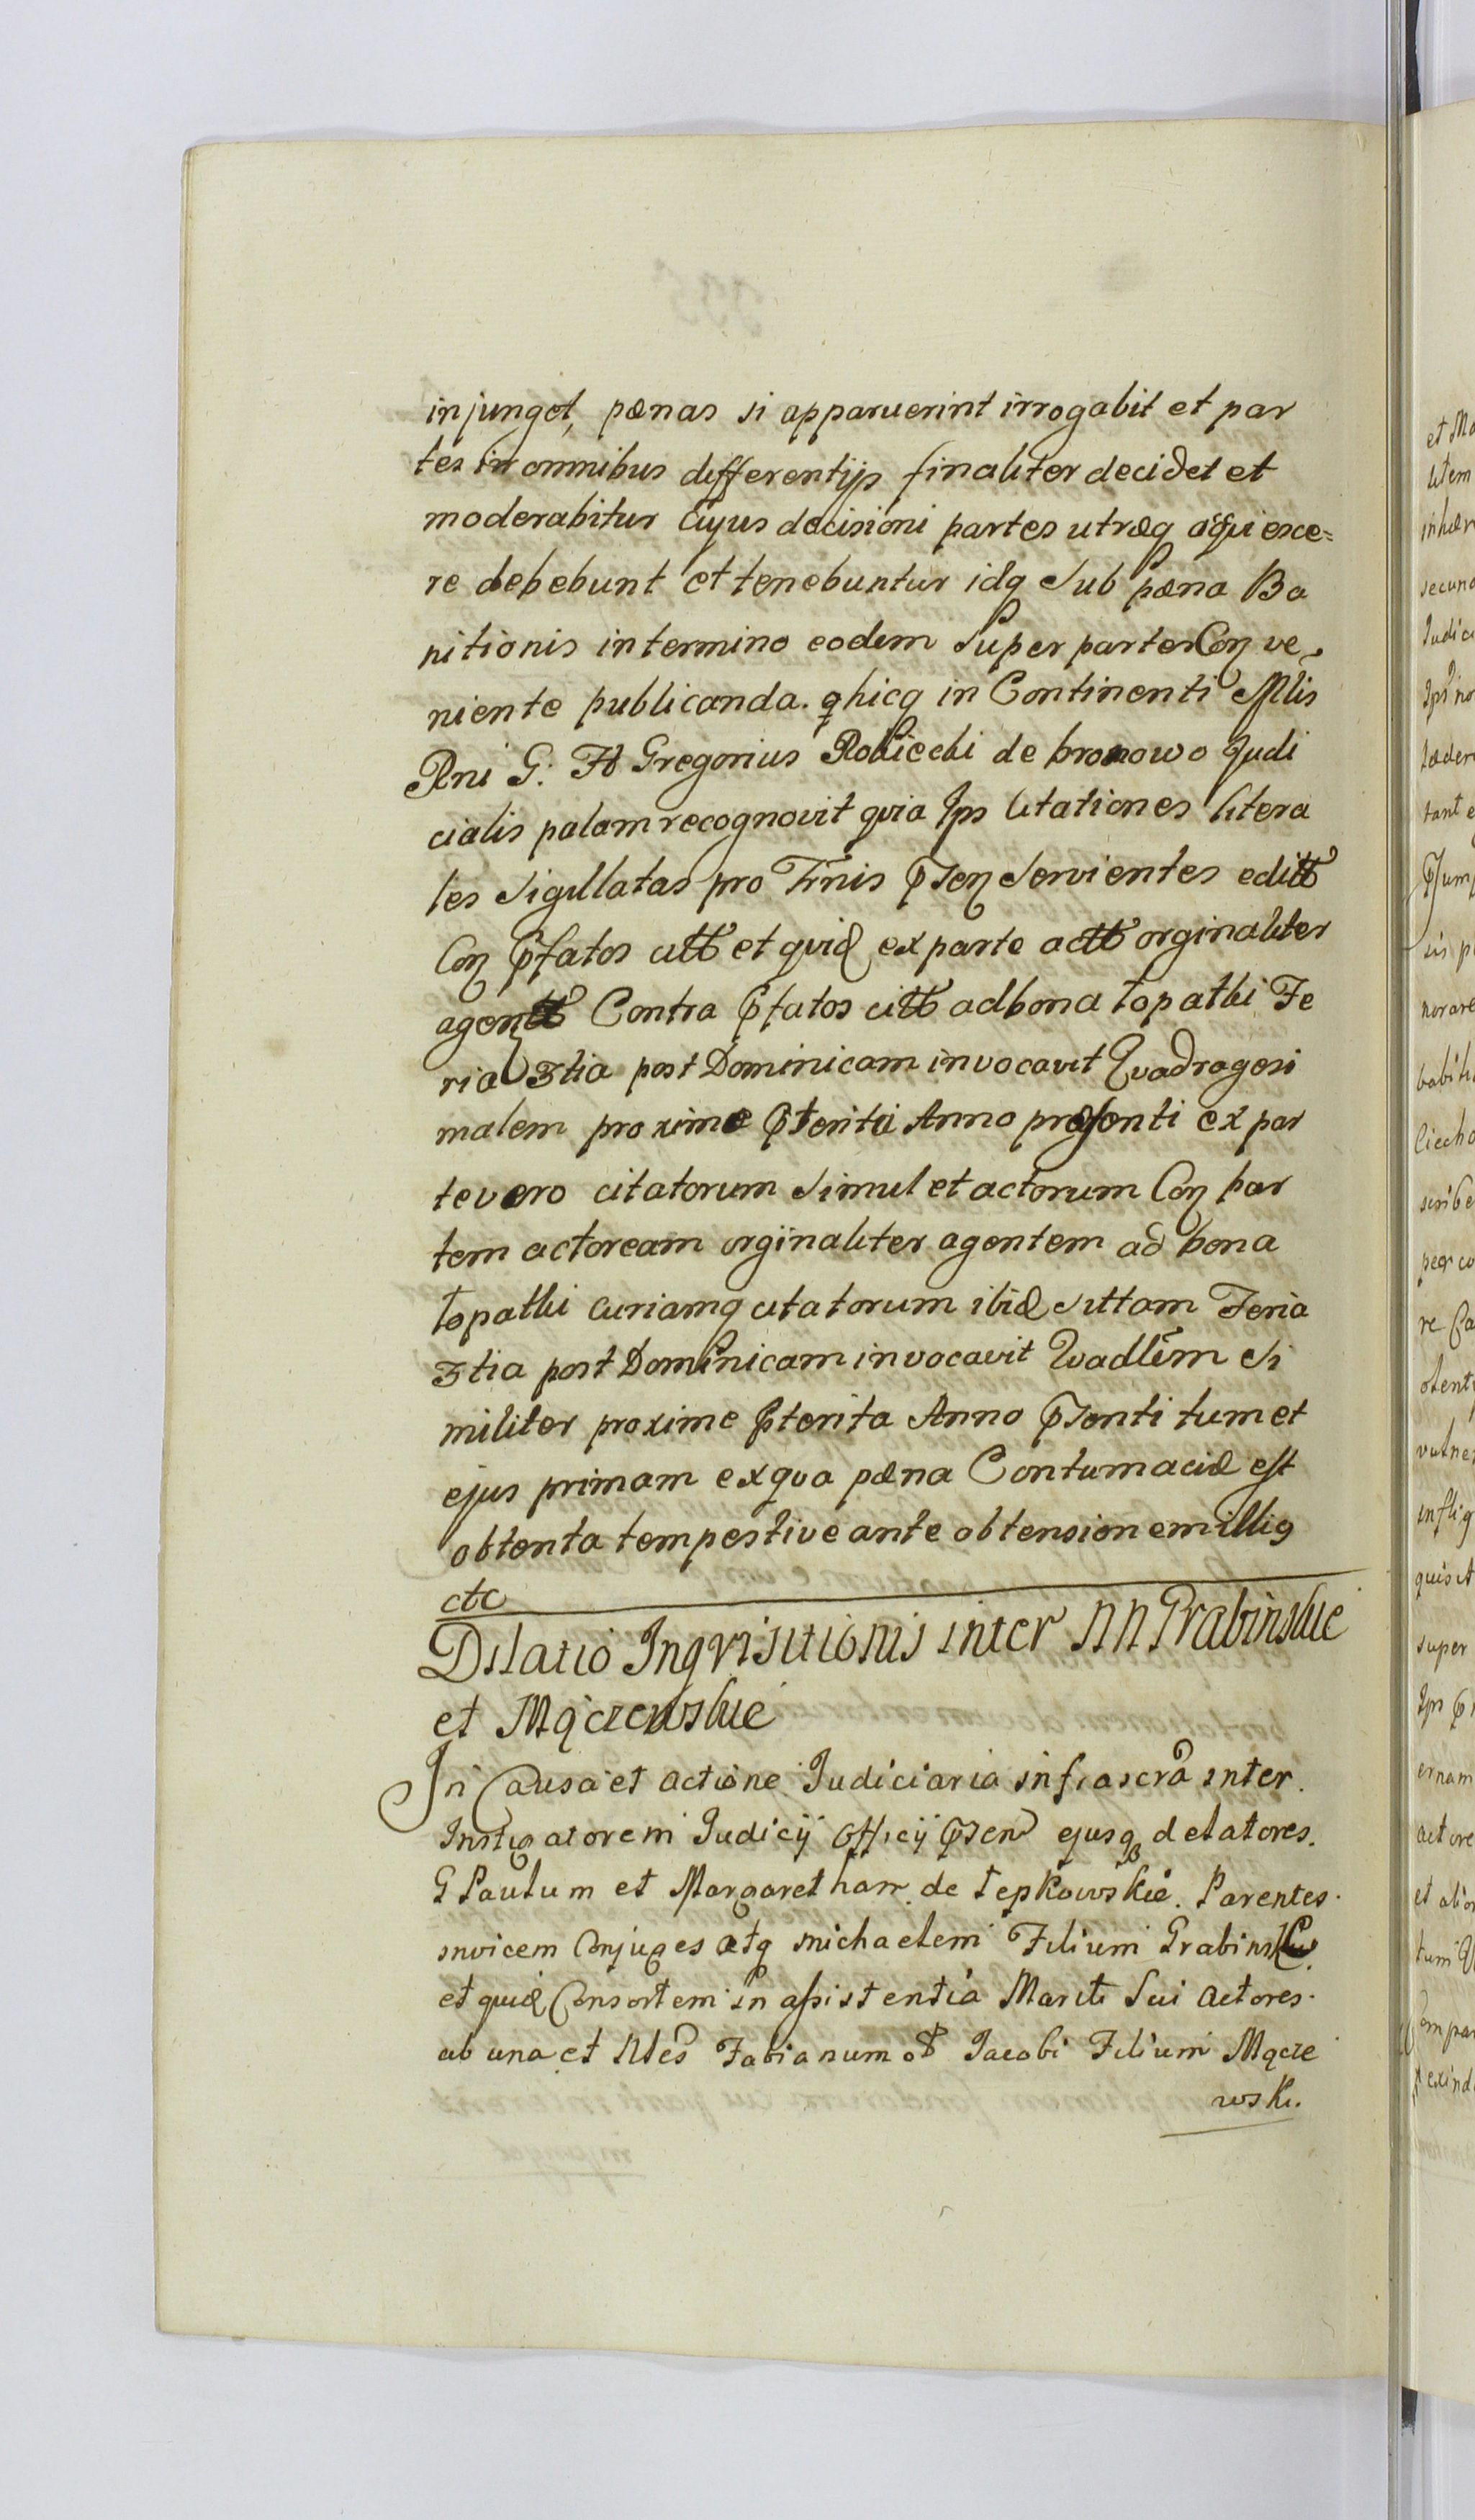 injunget, pænas si apparuerint irrogabit et par
tes in omnibus differentijs finaliter decidet et
moderabitur cujus decisioni partes utræq acquiesce=
re debebunt et tenebuntur idq sub pæna Ba
nitionis in termino eodem super partes Con ve
niente publicanda. hicq in Continenti Mlis
Rni G: Gregorius de bronowo Judi
cialis palam recognovit quia Ips litationes litera
les sigillatas pro Trnis psen servientes editt
Con pfatos citt et quid ex parte actt orginaliter
agentt Contra pfatos citt ad bona Łopatki Fe
ria 3tia post Dominicam invocavit Quadragesi
malem proxime pterita Anno præsenti ex par
te vero citatorum simul et actorum Con par
tem actoream orginaliter agentem ad bona
Łopatki curiamq citatorum ibid sittam Feria
3tia post Dominicam invocavit Qvadlem si
militer proxime pterita Anno psenti tum et
ejus primam ex qva pæna Contumaciæ est
obtenta tempestive ante obtensionem illig
etc
Dilatio Inqvisitionis inter NN Grabinskie
et Mączewskie
In Causa et actione Judiciaria infrascra inter.
Instigatorem Judicij Officij psen ejusq delatores.
G Paulum et Margaretham de Łepkowskie. Parentes.
invicem Conjuges atq michaelem Filium Grabinskie
et quid Consortem in assistentia Mariti sui actores.
ab una et Nles Fabianum Jacobi Filium Mącze
wski.